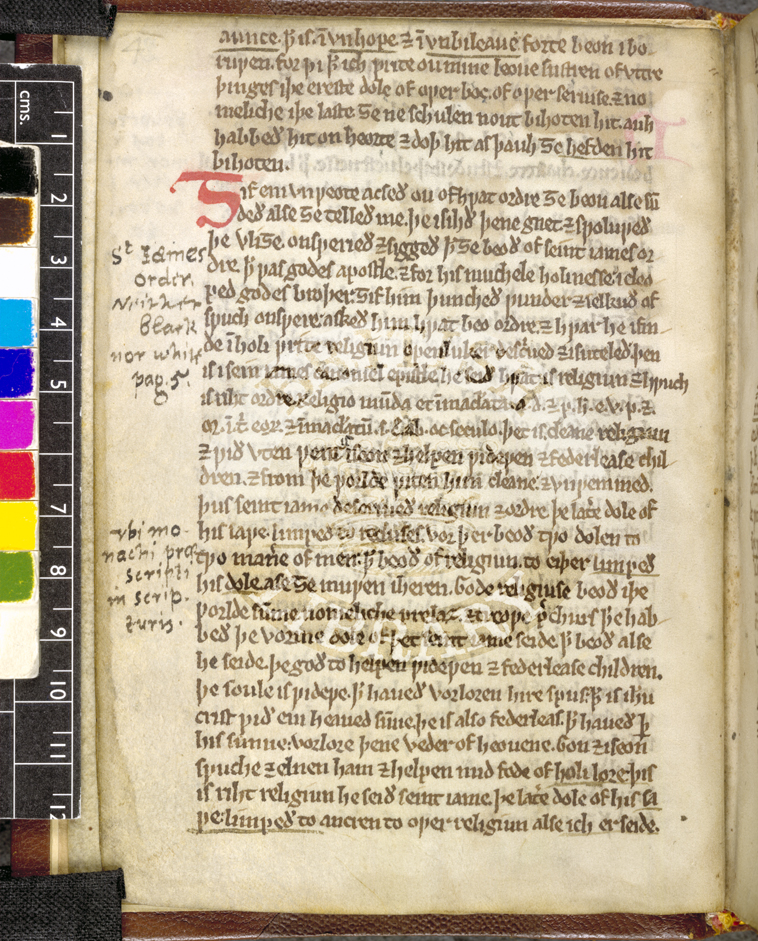 aunce. þ̵ is. ī vnhope ⁊ ī vnbileaue. forte beon i bo
ruwen. for ƿi þ̵ ich ƿrite ou mine leoue sustren of vttre
þinges iþe ereste dole of ower boc. of ower seruise. ⁊ no
meliche iþe laste Ȝe ne schulen nout bihoten hit. auh
habbeð hit on heorte ⁊ doþ hit as þauh Ȝe hefden hit
bihoten.
Ȝif eni vnƿeote acseð ou of hƿat ordre Ȝe beon alse sū
deð alse Ȝe telleð me. þe isihð þene gnet ⁊ sƿoluƿeð
þe vliȜe. onsƿerieð ⁊ siggeð þ̵ Ȝe beoð of seint iames or
dre. þ̵ ƿas godes apostle. ⁊ for his muchele holinesse: icleo
ped godes broþer. Ȝif him þuncheð ƿunder ⁊ selkuð of
spuch onsƿere: askeð him hƿat beo ordre. ⁊ hƿar he ifin
de i holi ƿrite religiun openluker descriued ⁊ isuteled þen
is i sein iames canonsel epistle. he seið hƿat is religiun ⁊ hƿuch
is riht ordre. Religio mūda et īmaculata
þet is. cleane religiun
⁊ ƿið vten ƿem: iseon ⁊ helpen ƿideƿen ⁊ federlease chil
dren. ⁊ from þe ƿorlde ƿiten him cleane: ⁊ vnƿemmed.
þus seint iame descriueð religiun ⁊ ordre. þe latere dole of
his saƿe: limpeð to recluses. vor þer beoð tƿo dolen to
tƿo manere of men. þ̵ beoð of religiun. to eiþer limpeð
his dole. ase Ȝe muƿen iheren. Gode religiuse beoð iþe
ƿorlde sūme nomeliche prelaz. ⁊ treoƿe prechurs þe hab
beð þe vorme dole of þet seint iame seide. þ̵ beoð alse
he seide. þe goð to helpen ƿideƿen ⁊ federlease children.
þe soule is ƿideƿe. þ̵ haueð vorloren hire spus: þ̵ is ihū
crist ƿið eni heaued sūne. he is also federleas. þ̵ haueð þ
his sunne: vorlore þene veder of heouene. Gon ⁊ iseon
spuche ⁊ elnen ham ⁊ helpen mid fode of holi lore: þis
is riht religiun he seið seint iame. þe latere dole of his sa
ƿe: limpeð to ancren to oƿer religiun alse ich er seide.
St Iames
Order.
Neither
black
nor white
pag. 5.
vbi mo-
nachi prae
scripti
in scrip-
turis.
cms.
1
2
3
4
5
6
7
8
9
10
11
12